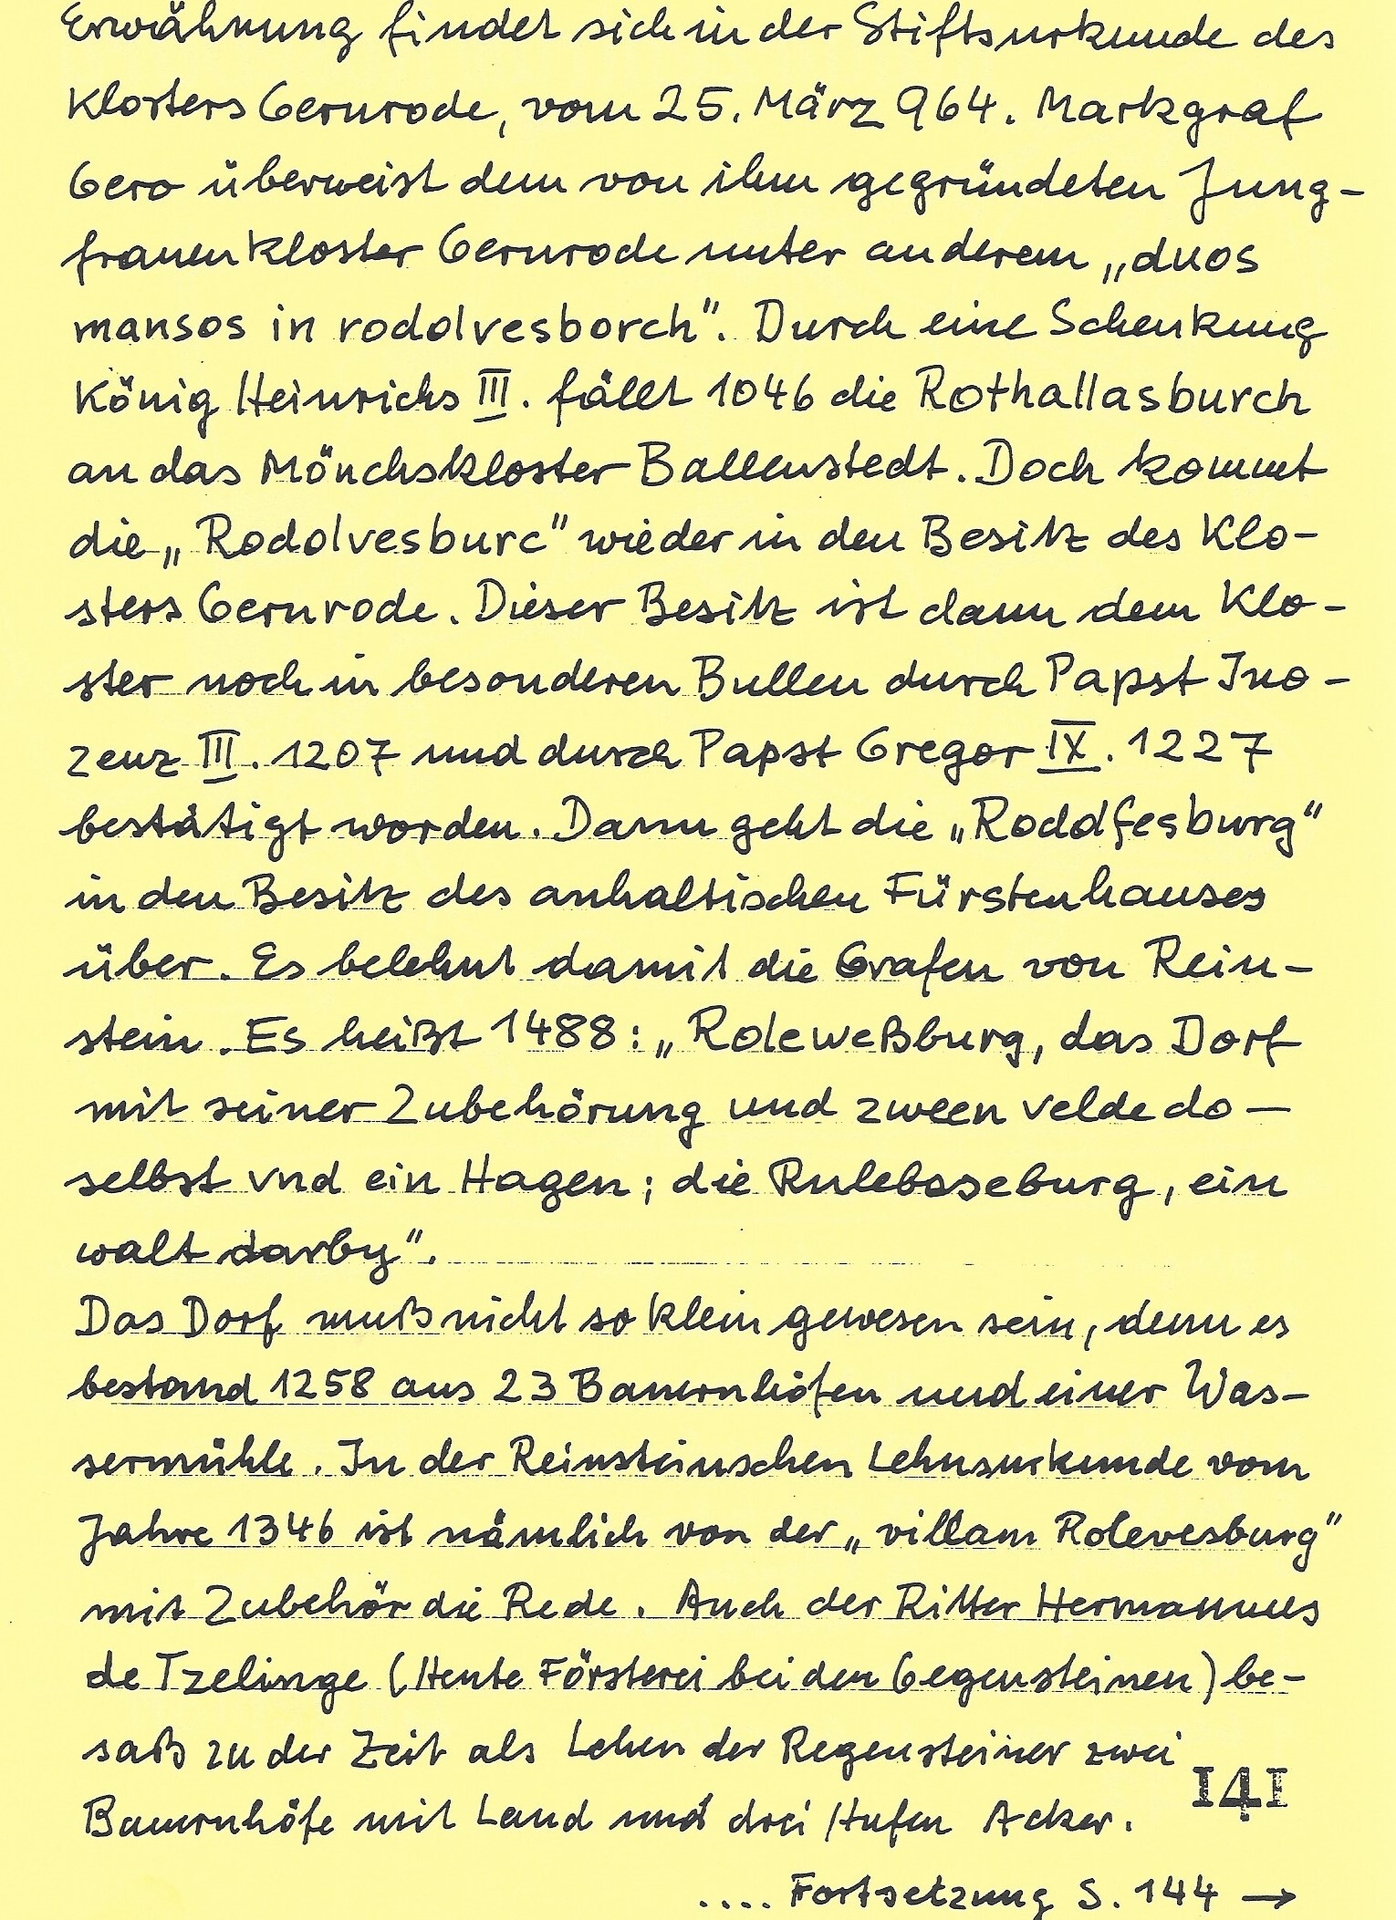 Erwähnung findet sich in der Stiftsurkunde des
Klosters Gernrode, vom 25. März 964. Markgraf
Gero überweist dem von ihm gegründeten Jung-
frauenkloster Gernrode unter anderem „duos
mansos in rodolvesborch". Durch eine Schenkung
König Heinrichs III. fällt 1046 die Rothallasburch
an das Mönchskloster Ballenstedt. Doch kommt
die „Rodolvesburc" wieder in den Besitz des Klo-
sters Gernrode. Dieser Besitz ist dann dem Klo-
ster noch in besonderen Bullen durch Papst Ino-
zenz III. 1207 und durch Papst Gregor IX. 1227
bestätigt worden. Dann geht die „Rodolfesburg"
in den Besitz des anhaltischen Fürstenhauses
über. Es belehnt damit die Grafen von Rein-
stein. Es heißt 1488: „Roleweßburg, das Dorf
mit seiner Zubehörung und zween velde do-
selbst vnd ein Hagen; die Ruleboseburg, ein
walt darby".
Das Dorf muß nicht so klein gewesen sein, denn es
bestand 1258 aus 23 Bauernhöfen und einer Was-
sermühle. In der Reinsteinschen Lehnsurkunde vom
Jahre 1346 ist nämlich von der „villam Rolevesburg"
mit Zubehör die Rede. Auch der Ritter Hermannus
de Tzelinge (Heute Försterei bei den Gegensteinen) be-
saß zu der Zeit als Lehen der Regensteiner zwei
Bauernhöfe mit Land und drei Hufen Acker.
141
.... Fortsetzung S. 144 →